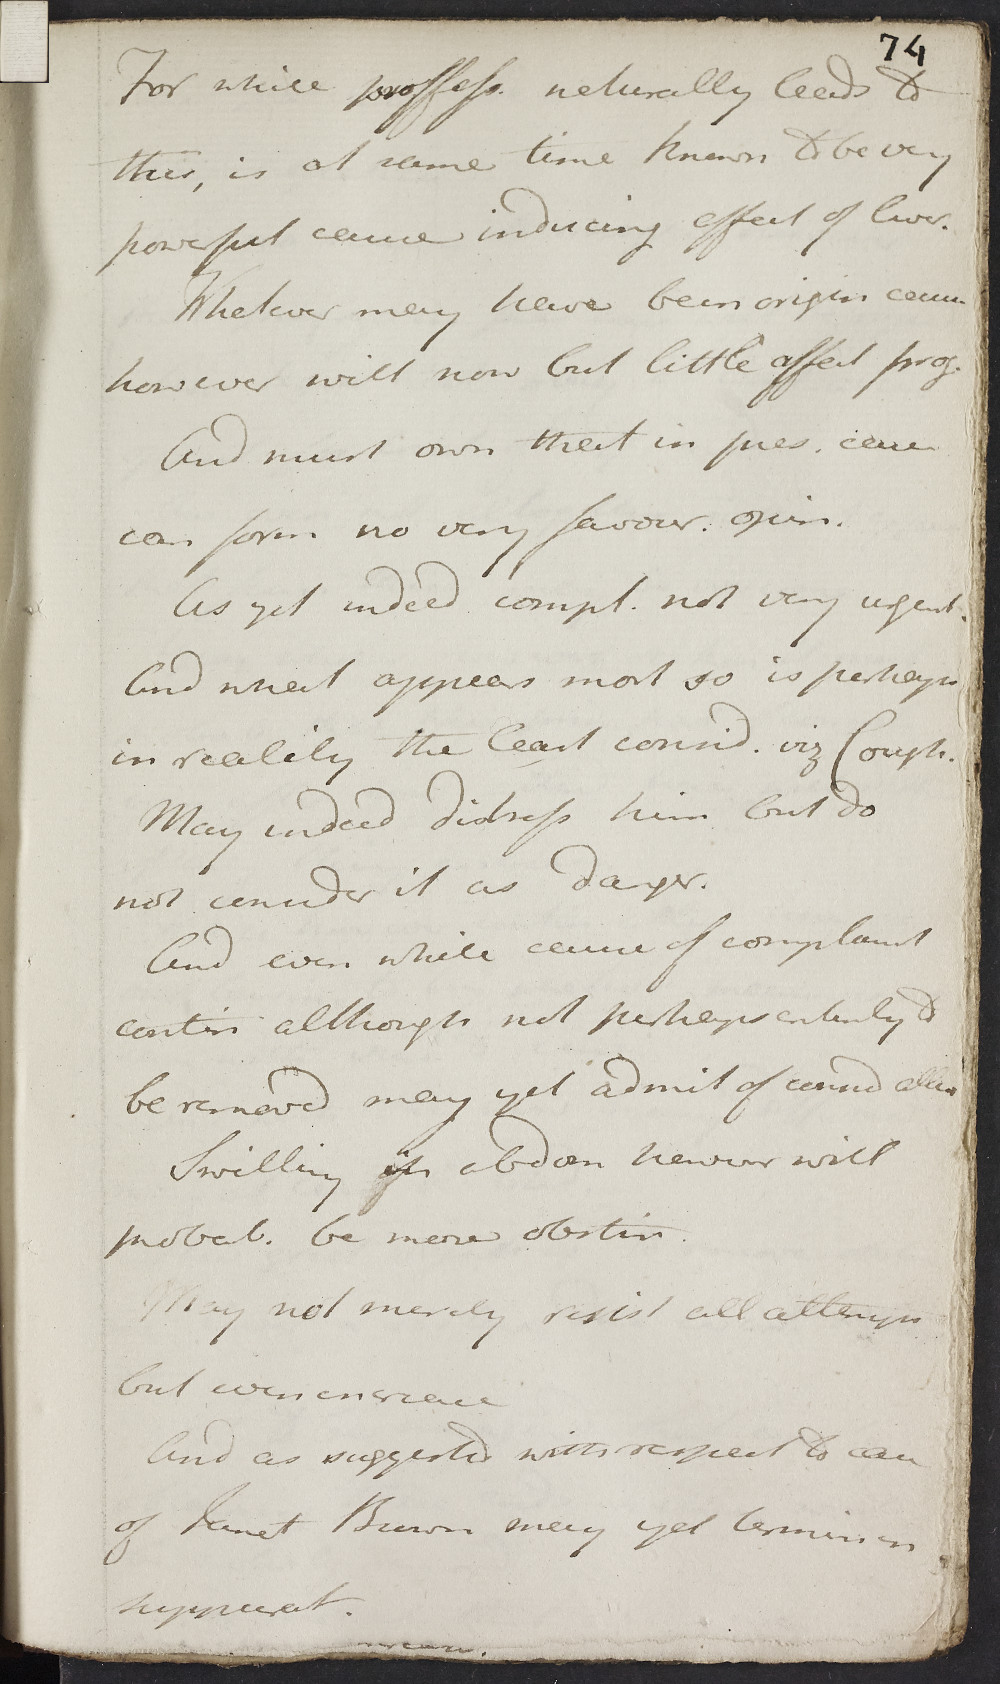 74
For while profess. naturally leads to
this, is at same time known to be very
powerful cause inducing affect of liver.
Whatever may have been origin cause
however will now but little affect prog.
And must own that in pres. case
can form no very favour. opin.
As yet indeed compl. not very urgent.
And what appears most so is perhaps
in reality the least consid. viz Cough.
May indeed distress him but do
not consider it as danger.
And even while cause of complaint
contin although not perhaps entirely to
be removed may yet admit of consid allev
Swelling in abdom however will
probab. be more obstin.
May not merely resist all attemps
but even increase
And as suggested with respect to case
of Janet Burn may yet termin in
suppurat.